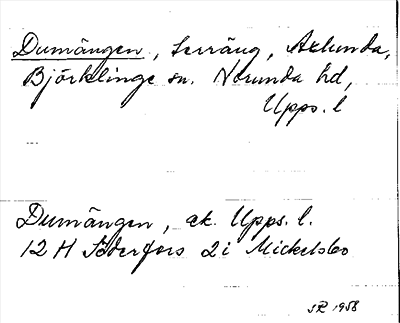 Dumängen, terräng, Axlunda,
Björklinge sn. Norunda hd,
Upps. l
Dumängen, ek. Upps. l.
12 H Söderfors 2 i Mickelsbo
1958